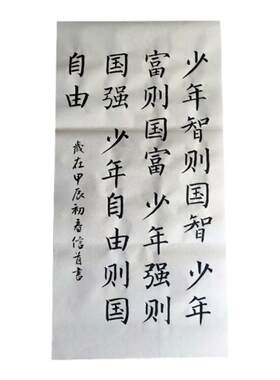 少年智则国智 少年
富则国富 少年强则
国强 少年自由则国
自由
歲在甲辰初春信首書